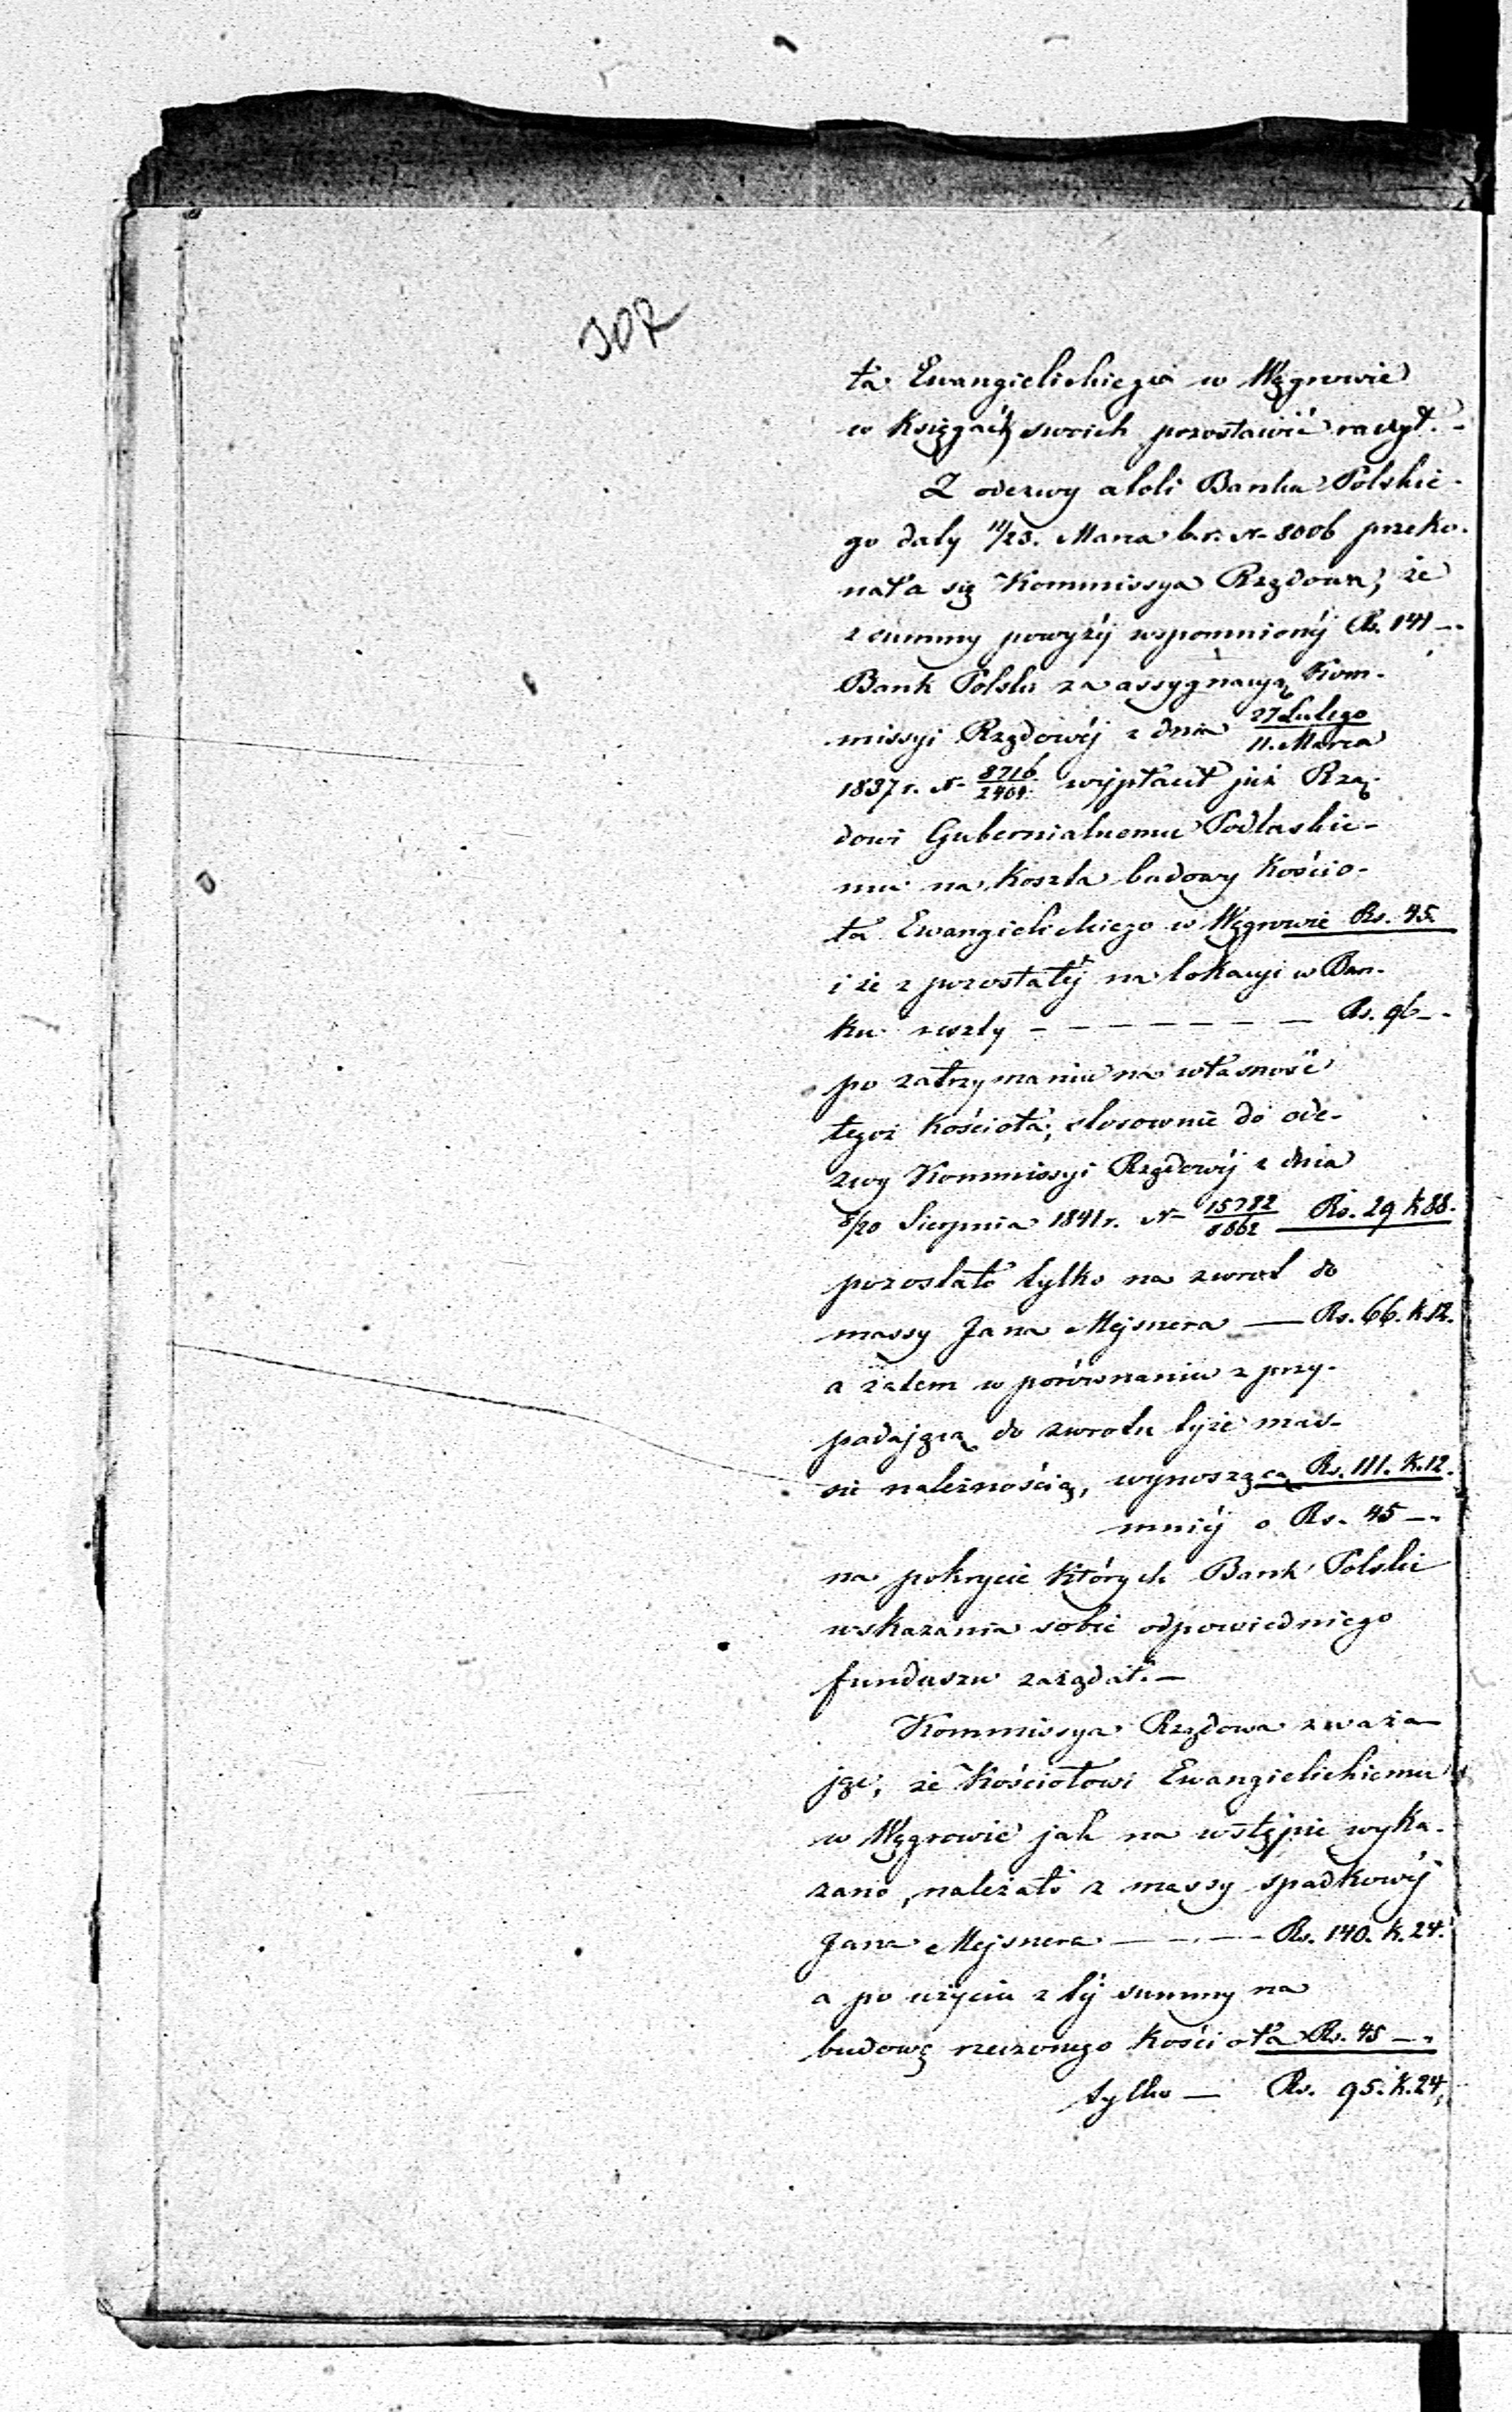 ła Ewangielickiego w Węgrowie
w Księgach swoich pozostawić raczył. -
Z odezwy atoli Banku Polskie-
go daty 11/23. Marca b.r. N- 8006 przeko-
nała się Kommissya Rządowa, że
z summy powyżéj wspomnionéj Rs. 141 -
Bank Polski za assygnacyą Kom-
missyi Rządowéj z dnia 27 Lutego / 11. Marca
1837 r. N- 8716 / 2404 wypłacił już Rzą-
dowi Gubernialnemu Podlaskie-
mu na koszta budowy Kościo-
ła Ewangielickiego w Węgrowie Rs. 45.
i że z pozostałéj na lokacyi w Ban-
ku reszty - - - - - - - Rs. 96 -
po zatrzymaniu na własność
tegoż Kościoła, stosownie do ode-
zwy Kommissyi Rządowéj z dnia
8/20 Sierpnia 1841 r. N- 15782 / 8662 Rs. 29 k 88.
pozostało tylko na zwrot do
massy Jana Mejsnera — Rs. 66. k. 12.
a zatem w porównaniu z przy-
padającą do zwrotu tyże mas-
sie należnością, wynoszącą Rs. 111. k. 12.
mniéj o Rs. 45 -
na pokrycie których Bank Polski
wskazania sobie odpowiedniego
funduszu zażądał. —
Kommissya Rządowa zważa-
jąc, że Kościołowi Ewangielickiemu
w Węgrowie jak na wstępie wyka-
zano, należało z massy spadkowéj
Jana Mejsnera - - - - Rs. 140. k. 24.
a po użyciu z téj summy na
budowę rzeczonego Kościoła Rs. 45 -
tylko — Rs. 95. k. 24,